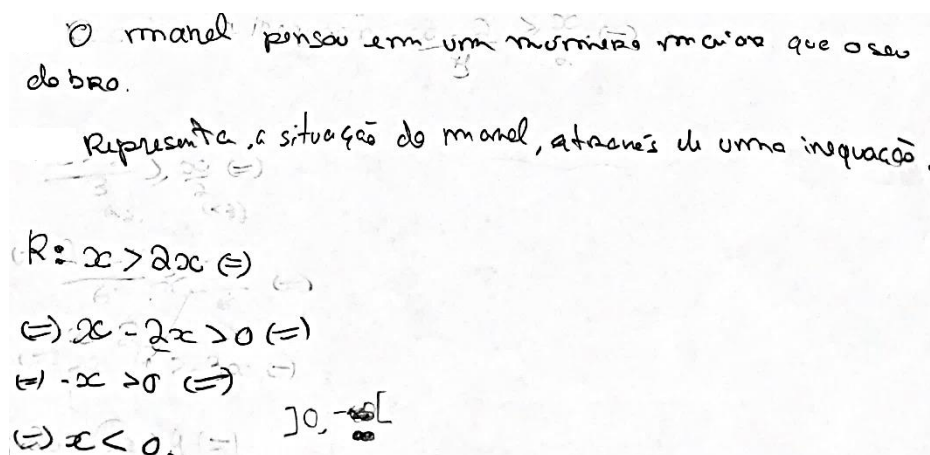 O manel pensou em um número maior que o seu
dobro.
Representa, a situação do manel, através de uma inequação.
R: x > 2x (=)
(=) x - 2x > 0 (=)
(=) -x > 0 (=)
(=) x < 0. ]0, -∞[